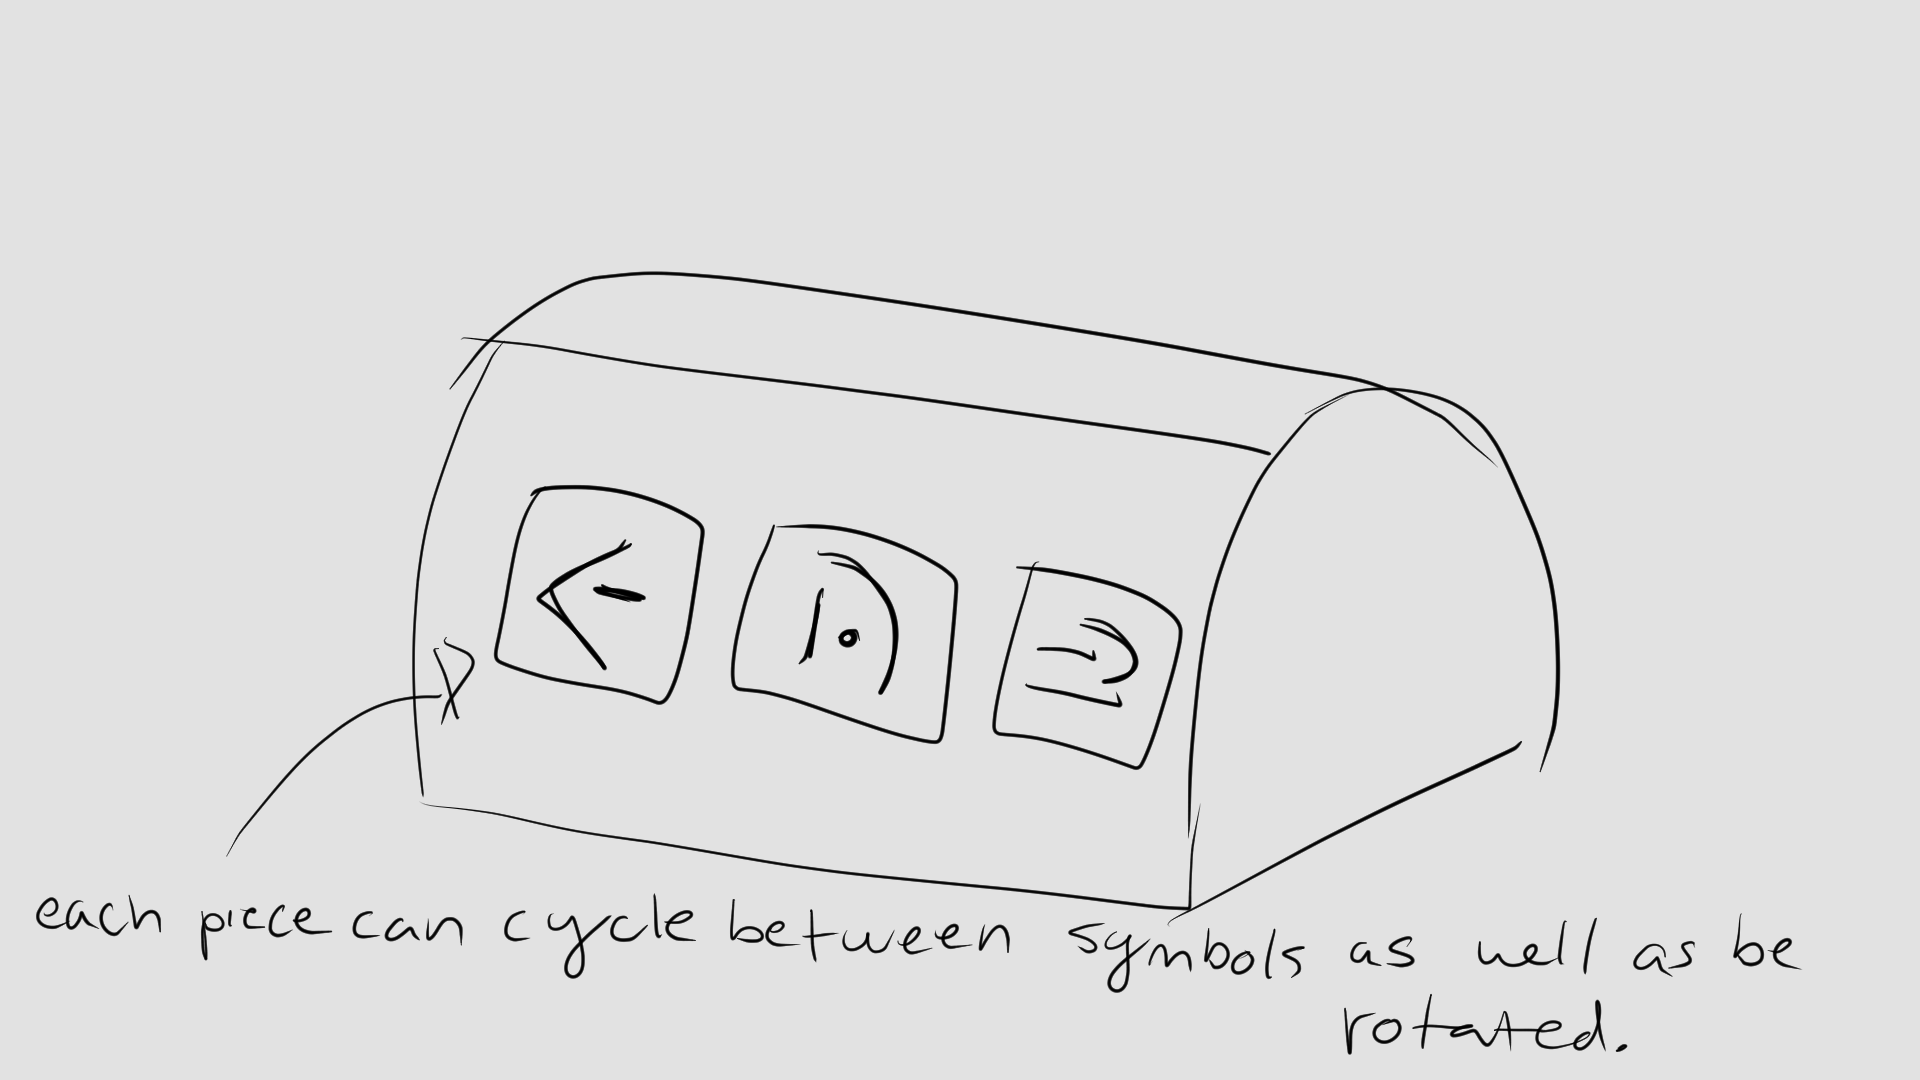 each piece can cycle between symbols as well as be
rotated.